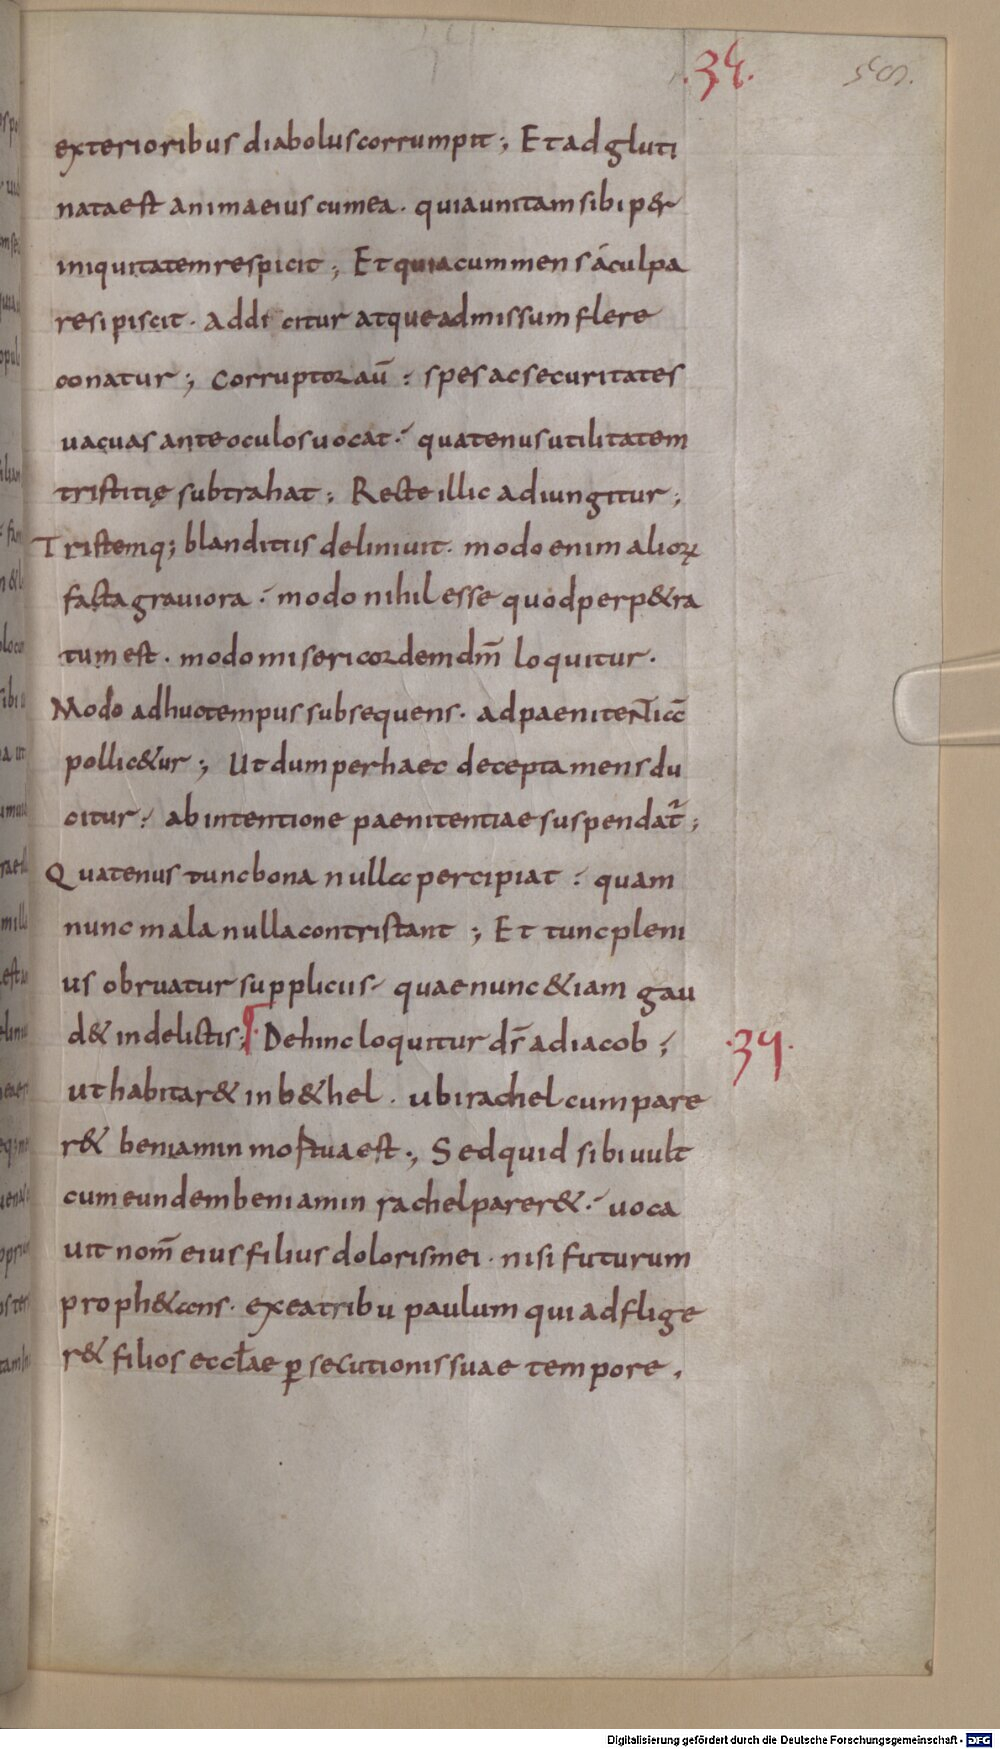 .34.
58.
exterioribus diabolus corrumpit ; Et adgluti
nata est anima eius cum ea . quia unitam sibi p&
iniquitatem respicit ; Et quia cum mens a culpa
resipiscit . addicitur atque admissum flere
conatur ; corruptor aū : spes ac securitates
vacuas ante oculos uocat . quatenus utilitatem
tristitię subtrahat ; Recte illic adiungitur ;
Tristemq; blanditiis deliniuit . modo enim alioꝝ
facta graviora . modo nihil esse quod perp&ra
tum est . modo misericordem dm̄ loquitur .
Modo adhuc tempus subsequens . ad paenitentia
pollic&ur ; Ut dum per haec decepta mens du
citur . ab intentione paenitentiae suspendat̄ ;
Quatenus tunc bona nulla percipiat : quam
nunc mala nulla contristant ; Et tunc pleni
us obruatur suppliciis . quae nunc &iam gau
d& in delictis ; Dehinc loquitur ds̄ ad iacob ;
.34.
ut habitar& in b&hel . ubi rachel cum pare
r& beniamin mortua est ; Sed quid sibi vult
cum eundem beniamin rachel parer& . uoca
uit nom̄ eius filius doloris mei . nisi futurum
proph&ans . ex ea tribu paulum qui adflige
r& filios eccl̄ae ꝑsecutionis suae tempore .
Digitalisierung gefördert durch die Deutsche Forschungsgemeinschaft - DFG